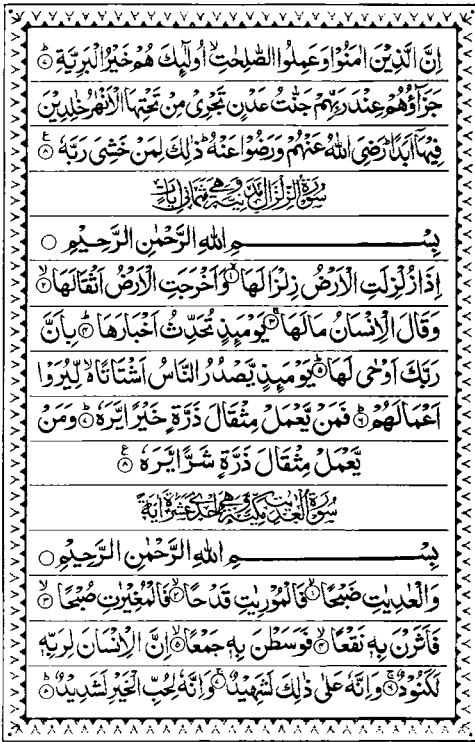 اِنَّ الَّذِيْنَ اٰمَنُوْا وَعَمِلُوا الصّٰلِحٰتِ ۙ اُولٰٓئِكَ هُمْ خَيْرُ الْبَرِيَّةِ ؕ ۷
جَزَآؤُهُمْ عِنْدَ رَبِّهِمْ جَنّٰتُ عَدْنٍ تَجْرِىْ مِنْ تَحْتِهَا الْاَنْهٰرُ خٰلِدِيْنَ
فِيْهَآ اَبَدًا ؕ رَضِىَ اللّٰهُ عَنْهُمْ وَرَضُوْا عَنْهُ ؕ ذٰلِكَ لِمَنْ خَشِىَ رَبَّهٗ ۸
سُوْرَةُ الزِّلْزَالِ مَدَنِيَّةٌ وَّهِىَ ثَمَانِىْ اٰيَاتٍ
بِسْمِ اللّٰهِ الرَّحْمٰنِ الرَّحِيْمِ ○
اِذَا زُلْزِلَتِ الْاَرْضُ زِلْزَالَهَا ۙ ۱ وَاَخْرَجَتِ الْاَرْضُ اَثْقَالَهَا ۙ ۲
وَقَالَ الْاِنْسَانُ مَا لَهَا ۚ ۳ يَوْمَئِذٍ تُحَدِّثُ اَخْبَارَهَا ؕ ۴ بِاَنَّ
رَبَّكَ اَوْحٰى لَهَا ؕ ۵ يَوْمَئِذٍ يَّصْدُرُ النَّاسُ اَشْتَاتًا ۙ لِّيُرَوْا
اَعْمَالَهُمْ ؕ ۶ فَمَنْ يَّعْمَلْ مِثْقَالَ ذَرَّةٍ خَيْرًا يَّرَهٗ ؕ ۷ وَمَنْ
يَّعْمَلْ مِثْقَالَ ذَرَّةٍ شَرًّا يَّرَهٗ ۸
سُوْرَةُ الْعٰدِيٰتِ مَكِّيَّةٌ وَّهِىَ اِحْدٰى عَشْرَةَ اٰيَةً
بِسْمِ اللّٰهِ الرَّحْمٰنِ الرَّحِيْمِ ○
وَالْعٰدِيٰتِ ضَبْحًا ۙ ۱ فَالْمُوْرِيٰتِ قَدْحًا ۙ ۲ فَالْمُغِيْرٰتِ صُبْحًا ۙ ۳
فَاَثَرْنَ بِهٖ نَقْعًا ۙ ۴ فَوَسَطْنَ بِهٖ جَمْعًا ۙ ۵ اِنَّ الْاِنْسَانَ لِرَبِّهٖ
لَكَنُوْدٌ ۚ ۶ وَاِنَّهٗ عَلٰى ذٰلِكَ لَشَهِيْدٌ ۚ ۷ وَاِنَّهٗ لِحُبِّ الْخَيْرِ لَشَدِيْدٌ ؕ ۸